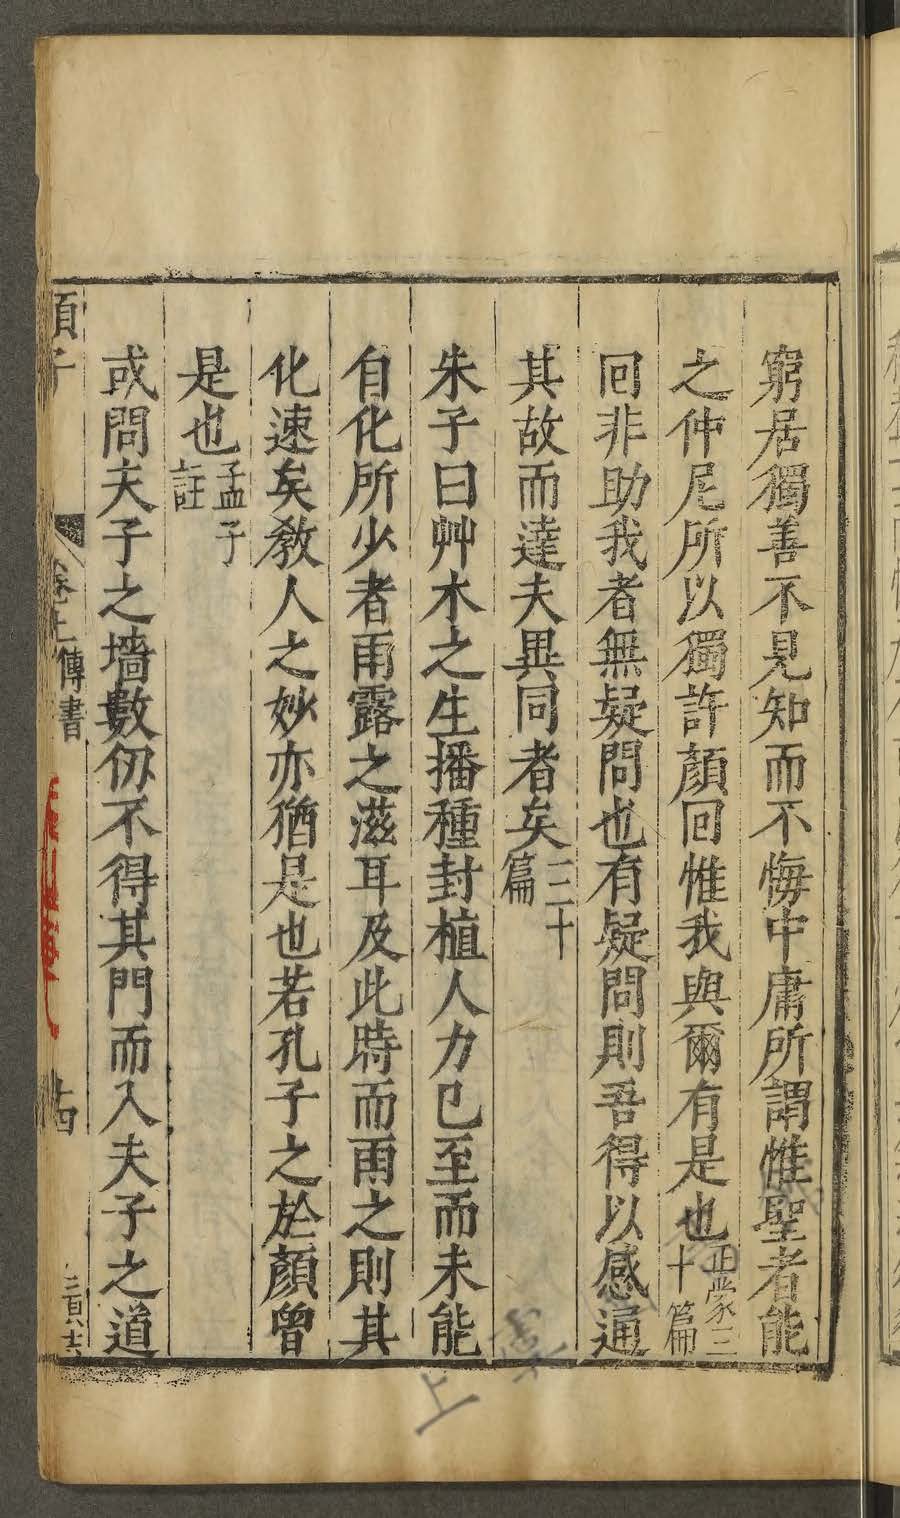 窮居獨善不見知而不悔中庸所謂惟聖者能
之仲尼所以獨許顏回惟我與爾有是也正蒙三十篇
回非助我者無疑問也有疑問則吾得以感通
其故而達夫異同者矣三十篇
朱子曰艸木之生播種封植人力已至而未能
自化所少者雨露之滋耳及此時而雨之則其
化速矣敎人之妙亦猶是也若孔子之於顏曾
是也孟子註
或問夫子之墻數仭不得其門而入夫子之道
卷上 傳書
十四